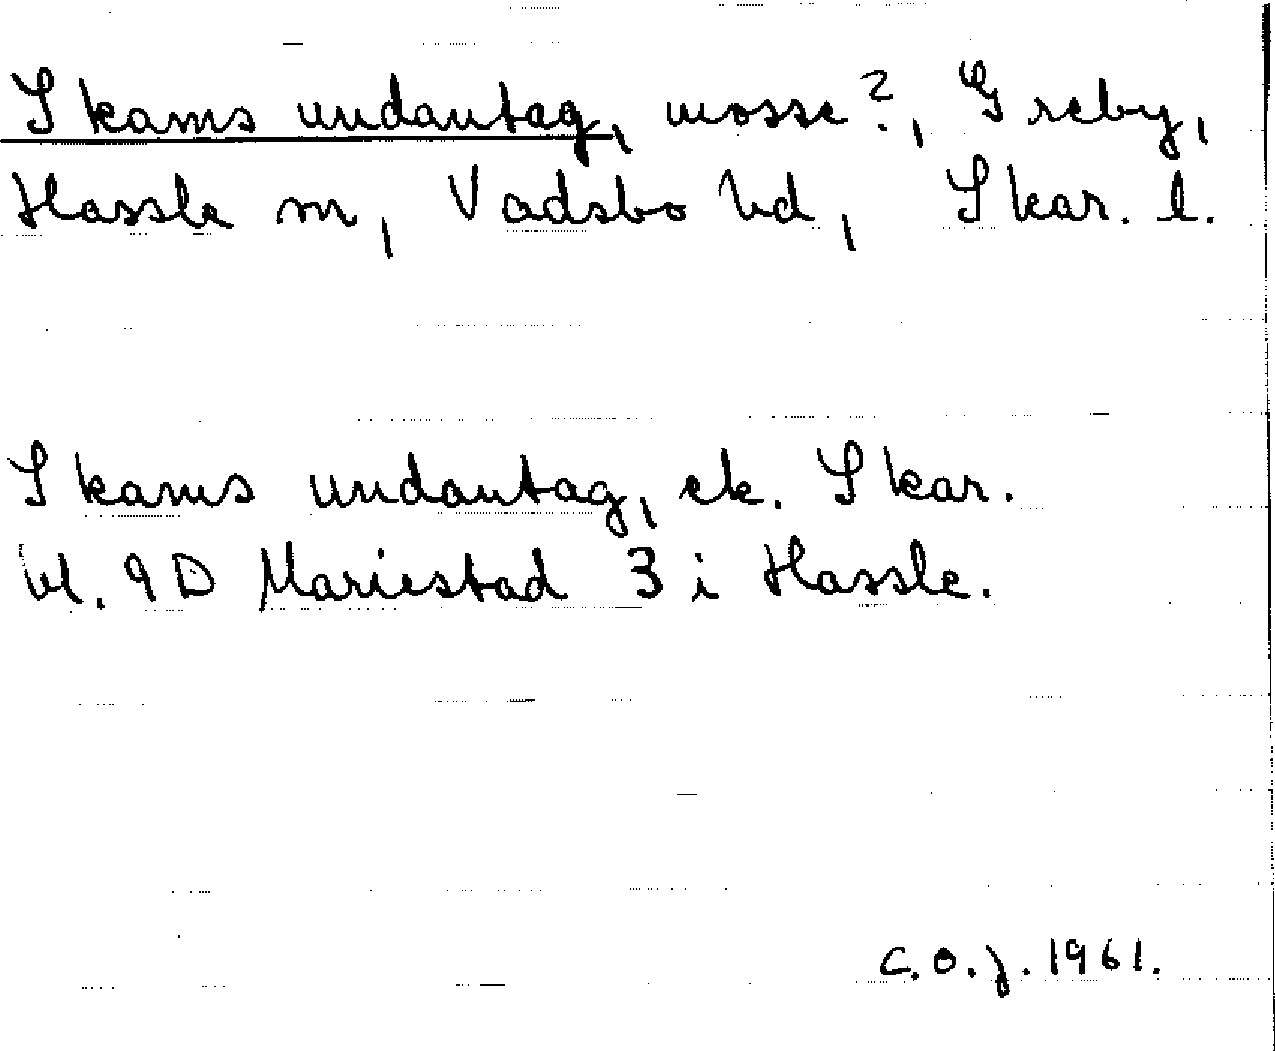 Skams undantag, mosse?, Greby,
Hassle sn, Vadsbo hd, Skar. l.
Skams undantag, ek. Skar.
bl. 9D Mariestad 3 i Hassle.
C.O.J. 1961.